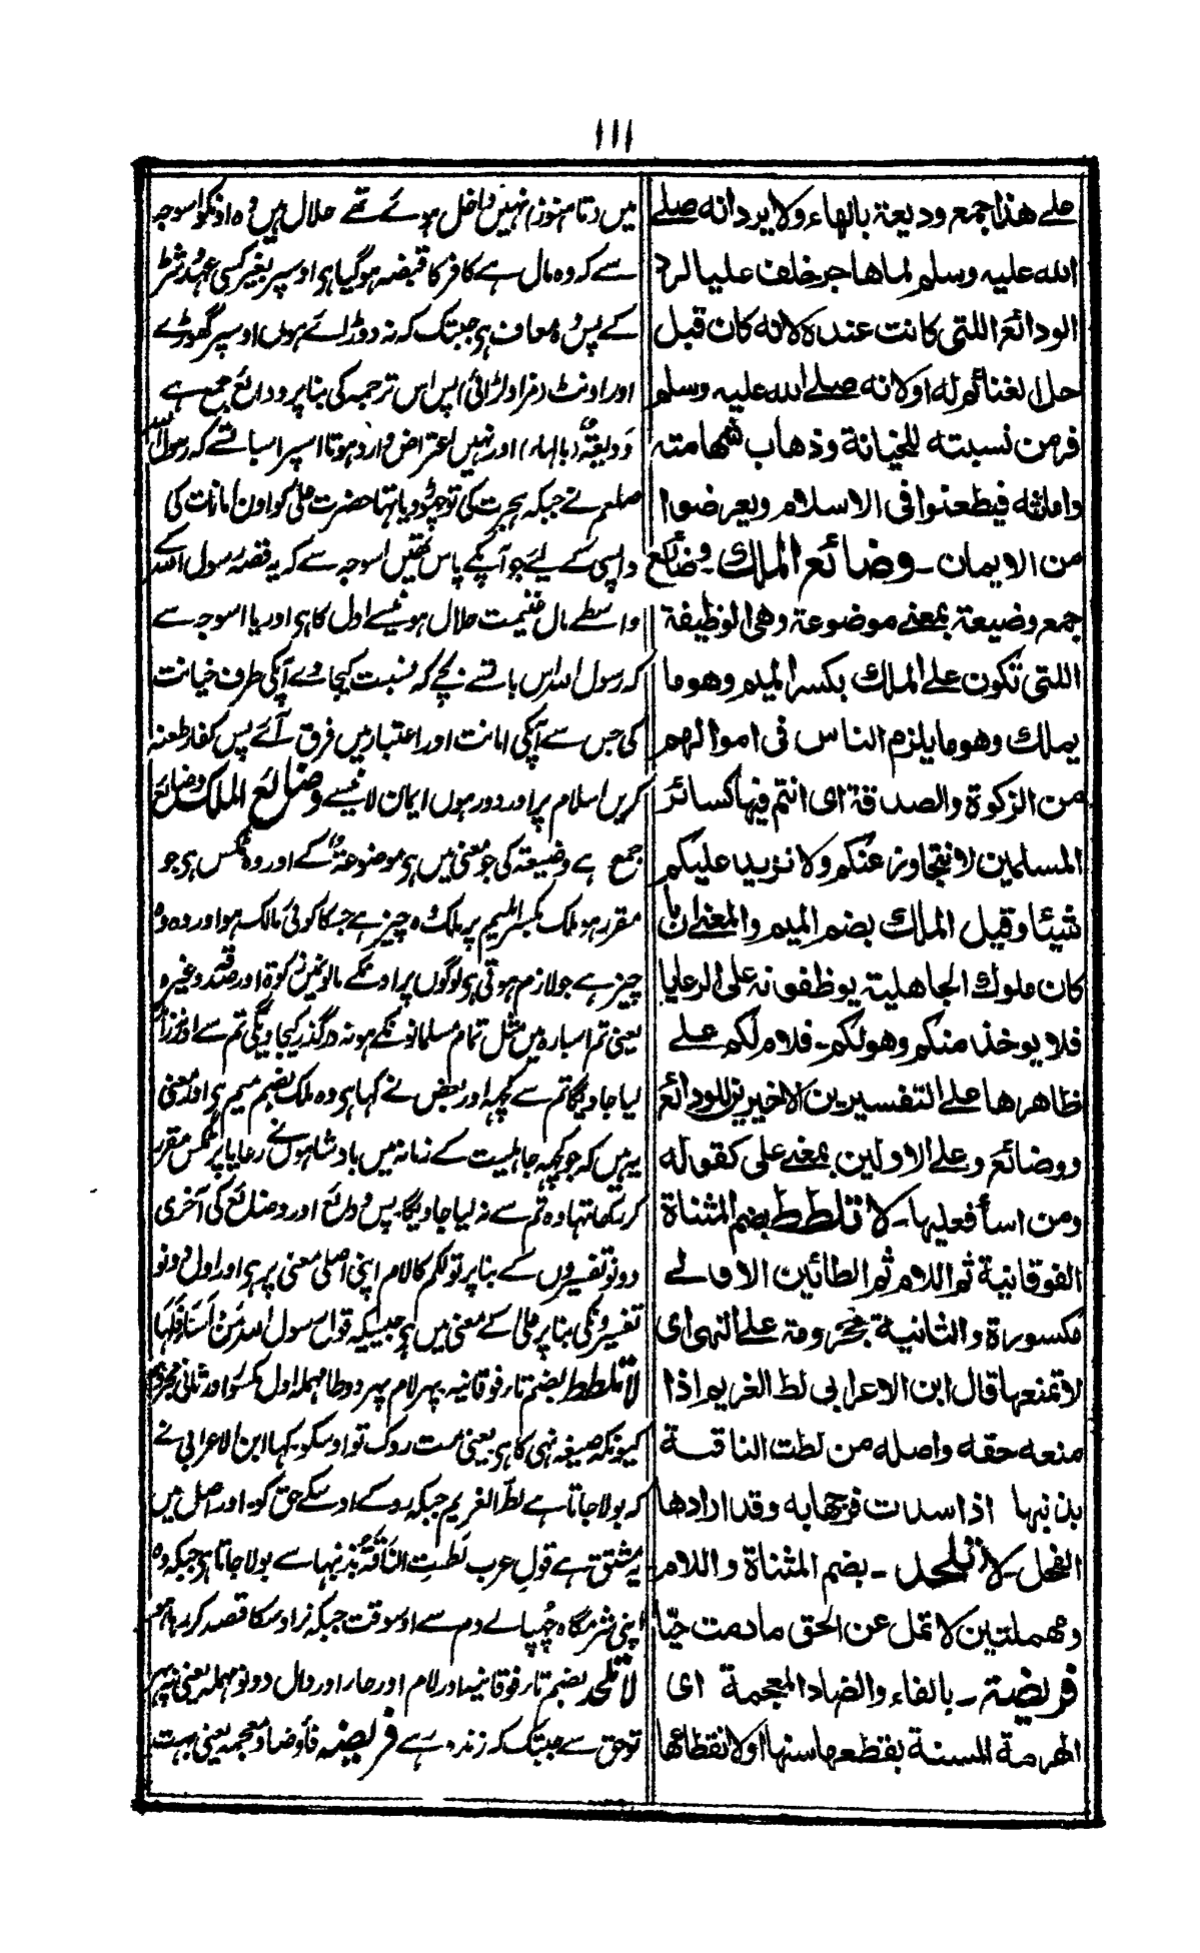 ١١١
على هذا جمع وديعة بالهاء ولا يرد انه صلے
الله عليه وسلم لما هاجر خلف عليا لرد
الودائع اللتى كانت عنده لانه كان قبل
حل الغنائم له اولانه صلے الله عليه وسلم
فر من نسبته للخيانة وذهاب شهامته
وامانته فيطعنوا فى الاسلام ويعرضوا
من الايمان ـ وضائع الملك وضائع
جمع وضيعة بمعنے موضوعة وهى الوظيفة
اللتى تكون على الملك بكسر الميم وهو ما
يملك وهو ما يلزم الناس فى اموالهم
من الزكوة والصدقة اى انتم فيها كسائر
المسلمين لا نتجاوز عنكم ولا نزيد عليكم
شيئا وقيل الملك بضم الميم والمعنے ان ما
كان ملوك الجاهلية يوظفونه على الرعايا
فلا يوخذ منكم وهو لكم ـ فلام لكم علے
ظاهرها على التفسيرين الاخيرين للودائع
ووضائع وعلى الاولين بمعنے على كقوله
ومن اسأ فعليها ـ لا تلطط بضم المثناة
الفوقانية ثم اللام ثم الطائين الاولے
مكسورة والثانية مجزومة علے النهى اى
لا تمنعها قال ابن الاعرابى لط الغريم اذا
منعه حقه واصله من لطت الناقة
بذنبها اذا سدت فرجها به وقد ارادها
الفحل ـ لا تلحد ـ بضم المثناة واللام
ومهملتين لا تمل عن الحق ما دمت حيّا
فريضة ـ بالفاء والضاد المعجمة اى
الهرمة المسنة بقطعها سنها او لانقطاعها
میں وتامہنوز نہیں داخل ہوئے تھے حلال ہیں وہ اونکو اسوجہ
سے کہ وہ مال ہے کافر کا قبضہ ہو گیا ہی اوسپر بغیر کسی عہد و شرط
کے پس وہ معاف ہی جبتک کہ نہ دوڑائے ہوں اوسپر گھوڑے
اور اونٹ پس اس ترجمہ کی بنا پر ودائع جمع ہے
وديعۃٌ (بالہاء) اور نہیں اعتراض وارد ہوتا اسپر اسبات سے کہ رسول اللہ
صلعم نے جبکہ ہجرت کی تو چھوڑ دیا تھا حضرت علی کو اون امانات کی
واپسی کے لیے جو آپکے پاس تھیں اسوجہ سے کہ یہ قصہ رسول اللہ کے
واسطے مال غنیمت حلال ہونیسے اول کا ہی اور یا اسوجہ سے
کہ رسول اللہ اس بات سے بچے کہ نسبت کیجاوے آپکی طرف خیانت
کی جس سے آپکی امانت اور اعتبار میں فرق آئے پس کفار طعنہ
کریں اسلام پر اور دور ہوں ایمان لانیسے وضائع الملک وضائع
جمع ہے وضیعۃ کی جو معنی میں ہی موضوعۃ کے اور وہ ٹکس ہی جو
مقرر ہو ملک بکسر المیم پر ملک وہ چیز ہے جسکا کوئی مالک ہو اور وہ
چیز ہے جو لازم ہوتی ہی لوگوں پر اونکے مالونمیں زکوۃ اور صدقہ وغیرہ
یعنی تم اسبارہ میں مثل تمام مسلمانونکے ہو نہ درگذر کیجاویگی تم سے اور نہ زائد
لیا جاویگا تم سے کچہہ اور بعض نے کہا ہی وہ ملک بضم میم ہی اور معنی
یہ ہیں کہ جو کچہہ جاہلیت کے زمانہ میں بادشاہوں نے رعایا پر ٹکس مقرر
کر رکھا تہا وہ تم سے نہ لیا جاویگا پس ودائع اور وضائع کی آخری
دونو تفسیروں کے بنا پر تو لکم کا لام اپنی اصلی معنی پر ہی اور اول دونو
تفسیرونکی بنا پر علیٰ کے معنی میں ہی جیسیکہ قول رسول اللہ مَنْ اَسَاَ فَعَلَيْهَا
لا تلطط بضم تار فوقانیہ پہر لام پہر دو طا مہملہ اول مکسور اور ثانی مجزوم
کیونکہ صیغہ نہی کا ہی یعنی مت روک تو اوسکو کہا ابن الاعرابی نے
کہ بولا جاتا ہے لطّ الغریم جبکہ روکے اوسکے حق کو۔ اور اصل میں
یہ مشتق ہے قول عرب لَطَّتِ النَّاقَةُ بِذَنَبِهَا سے بولا جاتا ہی جبکہ وہ
اپنی شرمگاہ چھپالے دم سے اوسوقت جبکہ نر اوسکا قصد کر رہا ہو
لا تلحد بضم تار فوقانیہ اور لام اور حار اور دال دونو مہملہ یعنی نہ پہر
تو حق سے جبتک کہ زندہ رہے فریضہ فأ وضاد معجمہ یعنی بہت